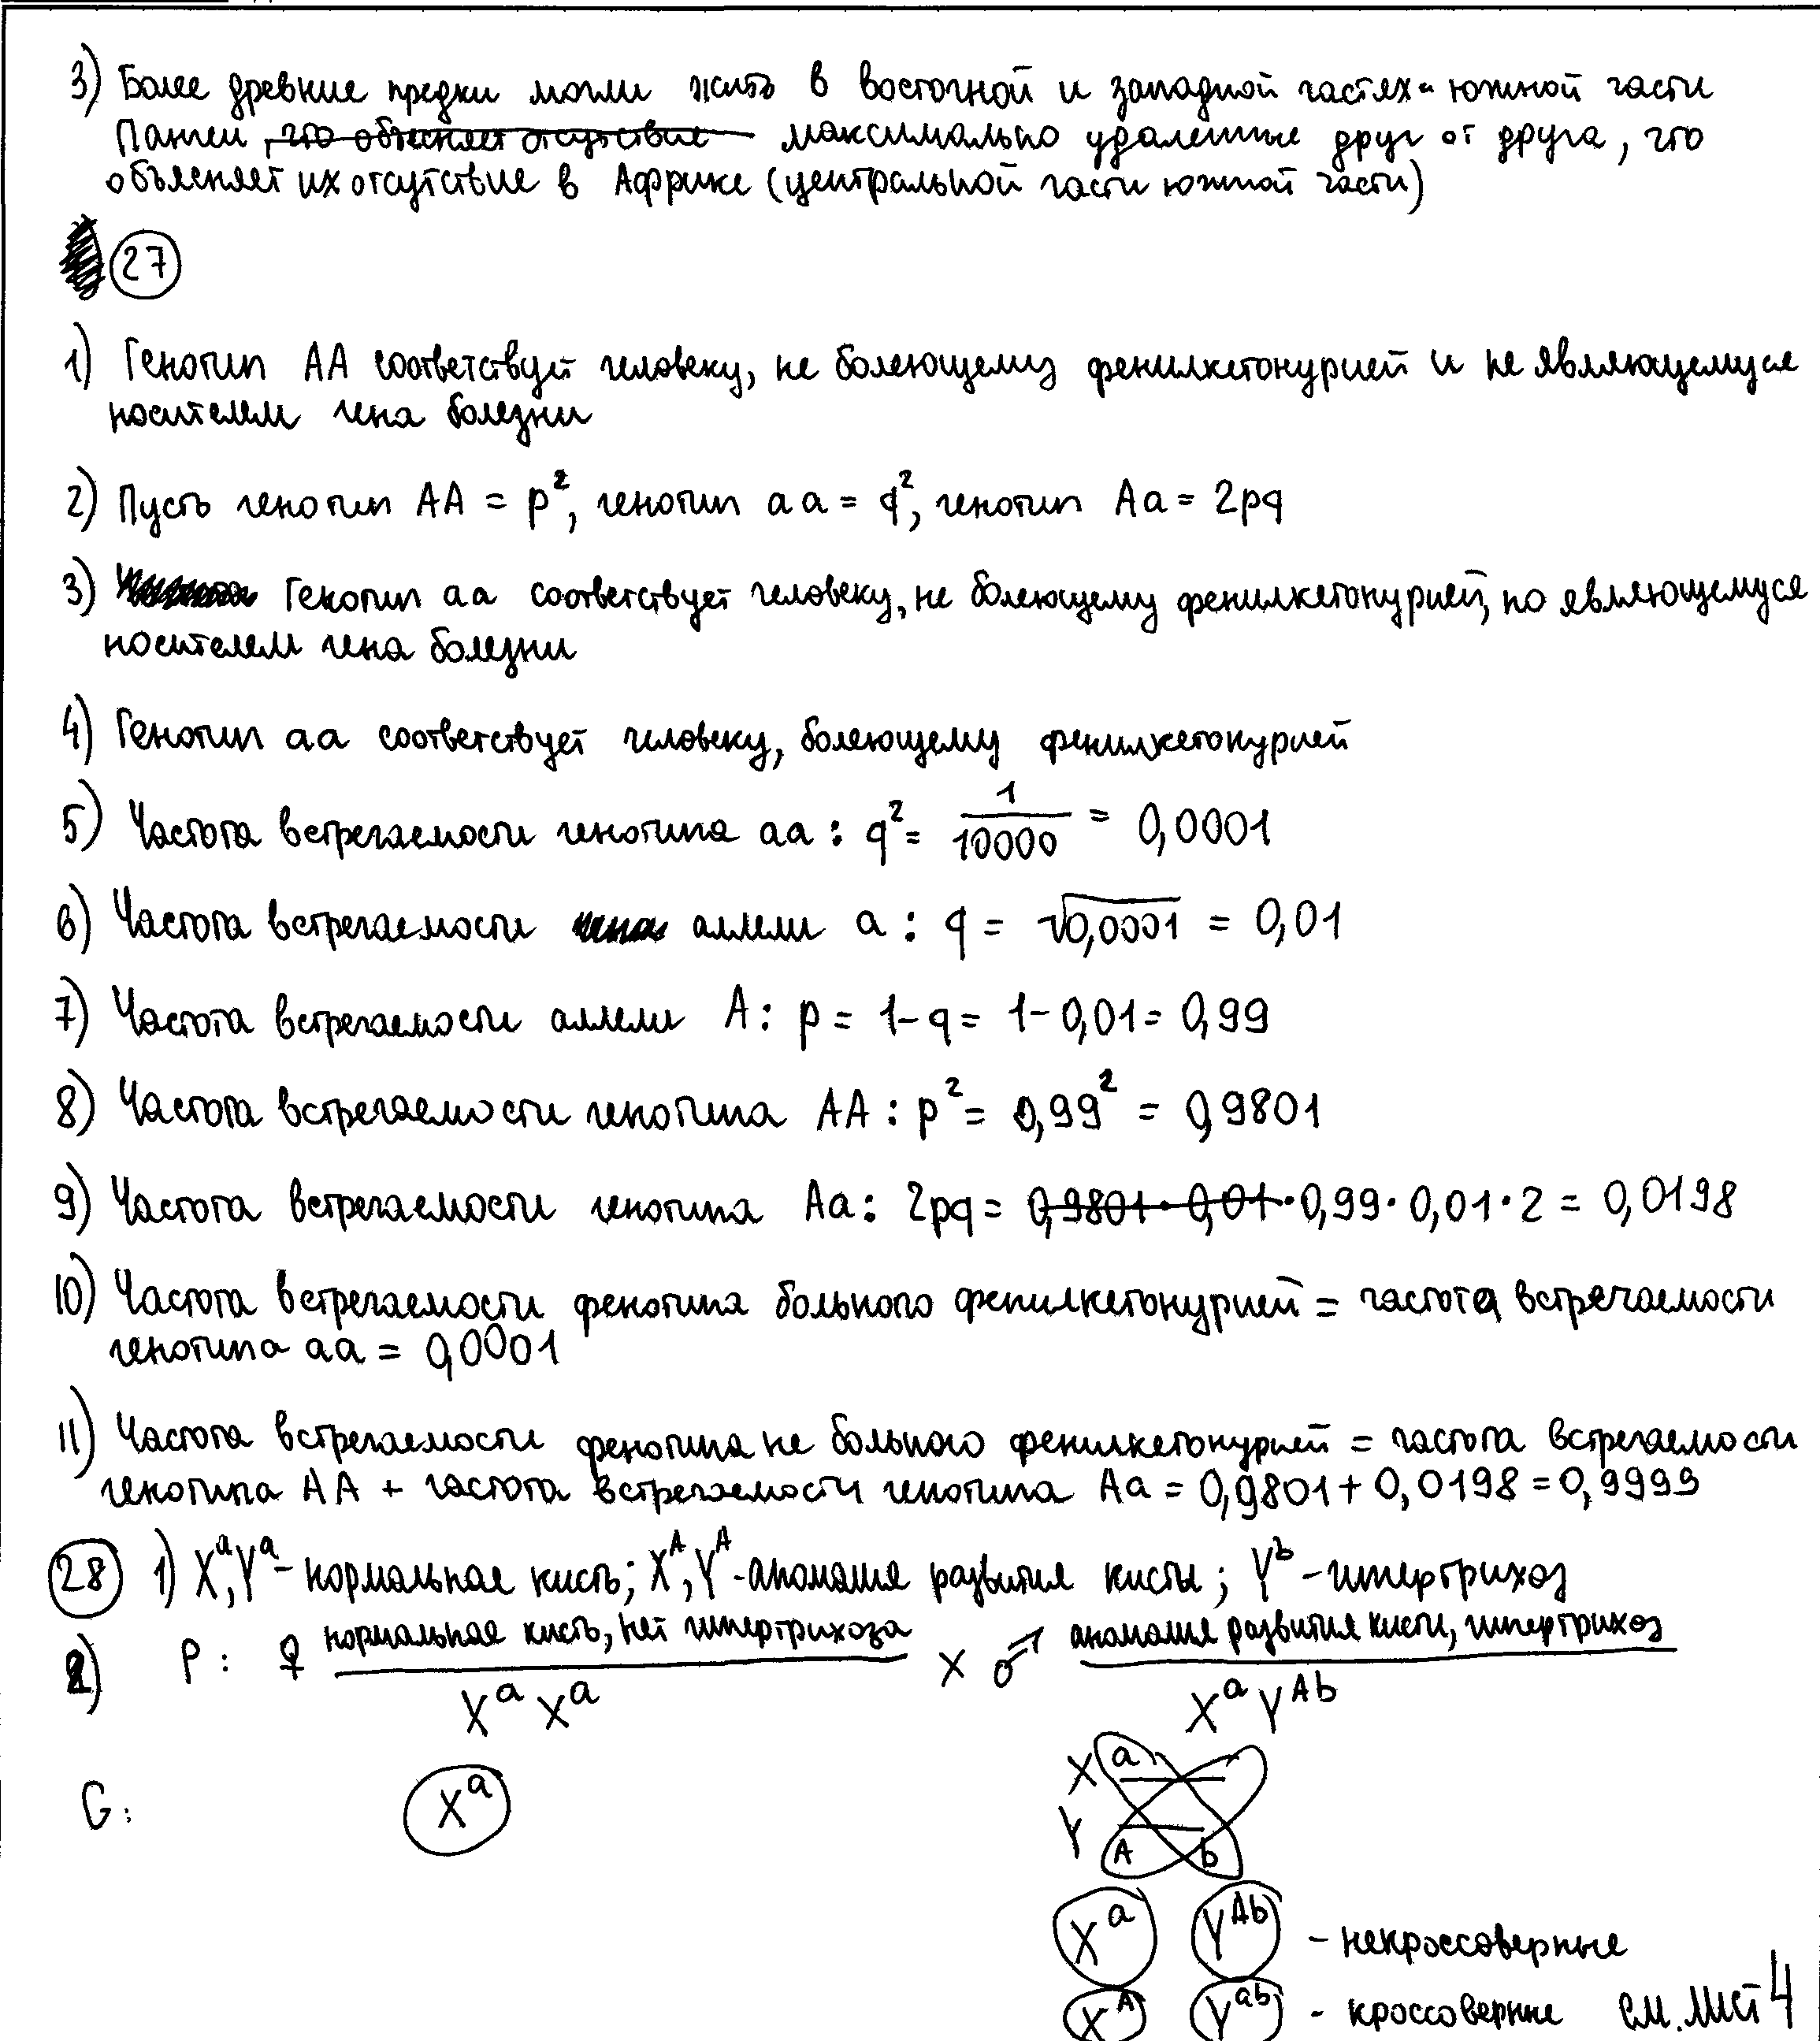 3) Более древние предки могли жить в восточной и западной частях южной части
Пангеи, что объясняет отсутствие максимально удаленные друг от друга, что
объясняет их отсутствие в Африке (центральной части южной части)
27
1) Генотип АА соответствует человеку, не болеющему фенилкетонурией и не являющемуся
носителем гена болезни
2) Пусть генотип АА = p², генотип аа = q², генотип Аа = 2pq
3) Генотип аа соответствует человеку, не болеющему фенилкетонурией, но являющемуся
носителем гена болезни
4) Генотип аа соответствует человеку, болеющему фенилкетонурией
5) Частота встречаемости генотипа аа: q² = 1/10000 = 0,0001
6) Частота встречаемости гена аллели а: q = √0,0001 = 0,01
7) Частота встречаемости аллели А: p = 1-q = 1-0,01 = 0,99
8) Частота встречаемости генотипа АА: p² = 0,99² = 0,9801
9) Частота встречаемости генотипа Аа: 2pq = 0,9801·0,01·0,99·0,01·2 = 0,0198
10) Частота встречаемости фенотипа больного фенилкетонурией = частота встречаемости
генотипа аа = 0,0001
11) Частота встречаемости фенотипа не больного фенилкетонурией = частота встречаемости
генотипа АА + частота встречаемости генотипа Аа = 0,9801 + 0,0198 = 0,9999
28 1) Xᵃ,Yᵃ - нормальная кисть; Xᴬ,Yᴬ - аномалия развития кисты; Yᵇ - гипертрихоз
2) P: ♀ нормальная кисть, нет гипертрихоза X ♂ аномалия развития кисти, гипертрихоз
XᵃXᵃ XᵃYᴬᵇ
G: Xᵃ
X a
Y A b
Xᵃ Yᴬᵇ - некроссоверные
Xᴬ Yᵃᵇ - кроссоверные см. лист 4